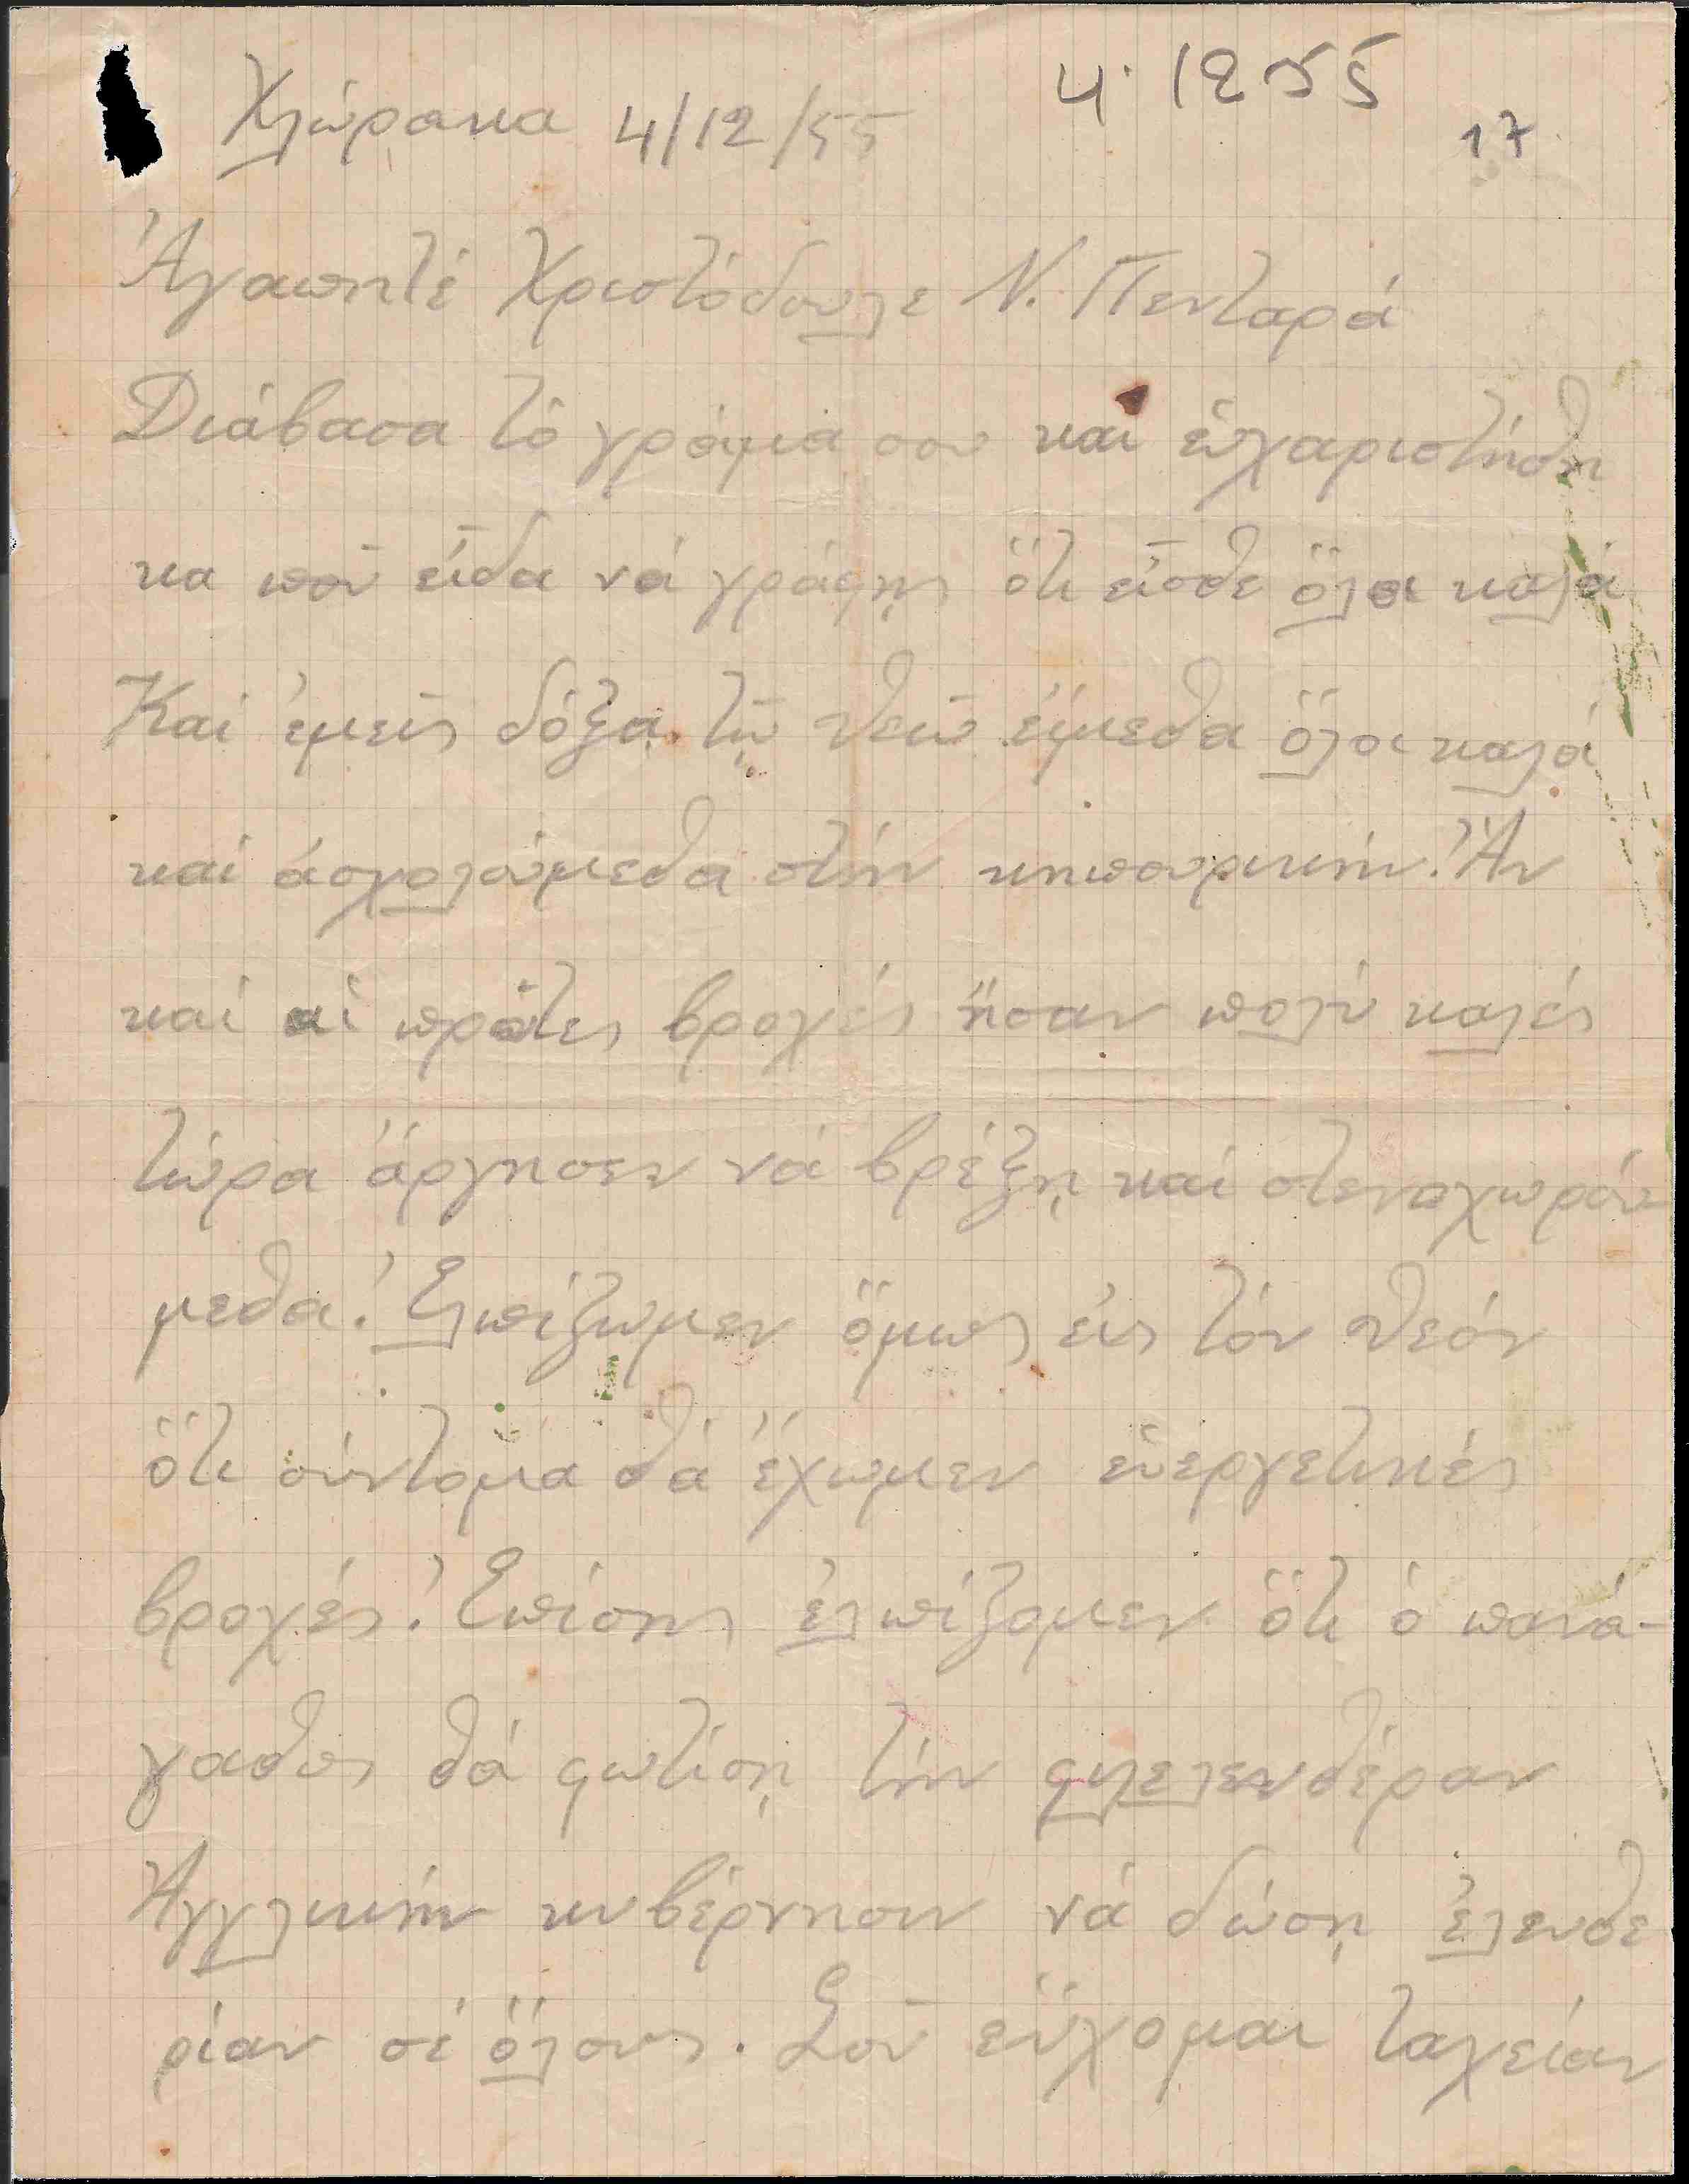 4. 12 55
Χλώρακα 4/12/55
17
Ἀγαπητέ Χριστόδουλε Ν. Πενταρά
Διάβασα τό γράμμα σου καί εὐχαριστήθη
κα ποῦ εἶδα νά γράφῃς ὅτι εἶσθε ὅλοι καλά
Καί ἐμεῖς δόξα τῷ Θεῷ εἴμεθα ὅλοι καλά
καί ἀσχολούμεθα στήν κηπουρικήν. Ἄν
καί αἱ πρῶτες βροχές ἦσαν πολύ καλές
τώρα ἄργησεν νά βρέξῃ καί στενοχωρού
μεθα. Ἐλπίζωμεν ὅμως εἰς τόν Θεόν
ὅτι σύντομα θά ἔχωμεν εὐεργετικές
βροχές. Ἐπίσης ἐλπίζομεν ὅτι ὁ πανά-
γαθος θά φωτίσῃ τήν φιλελευθέραν
Ἀγγλικήν κυβέρνησιν νά δώσῃ ἐλευθε
ρίαν σέ ὅλους. Σοῦ εὔχομαι ταχείαν